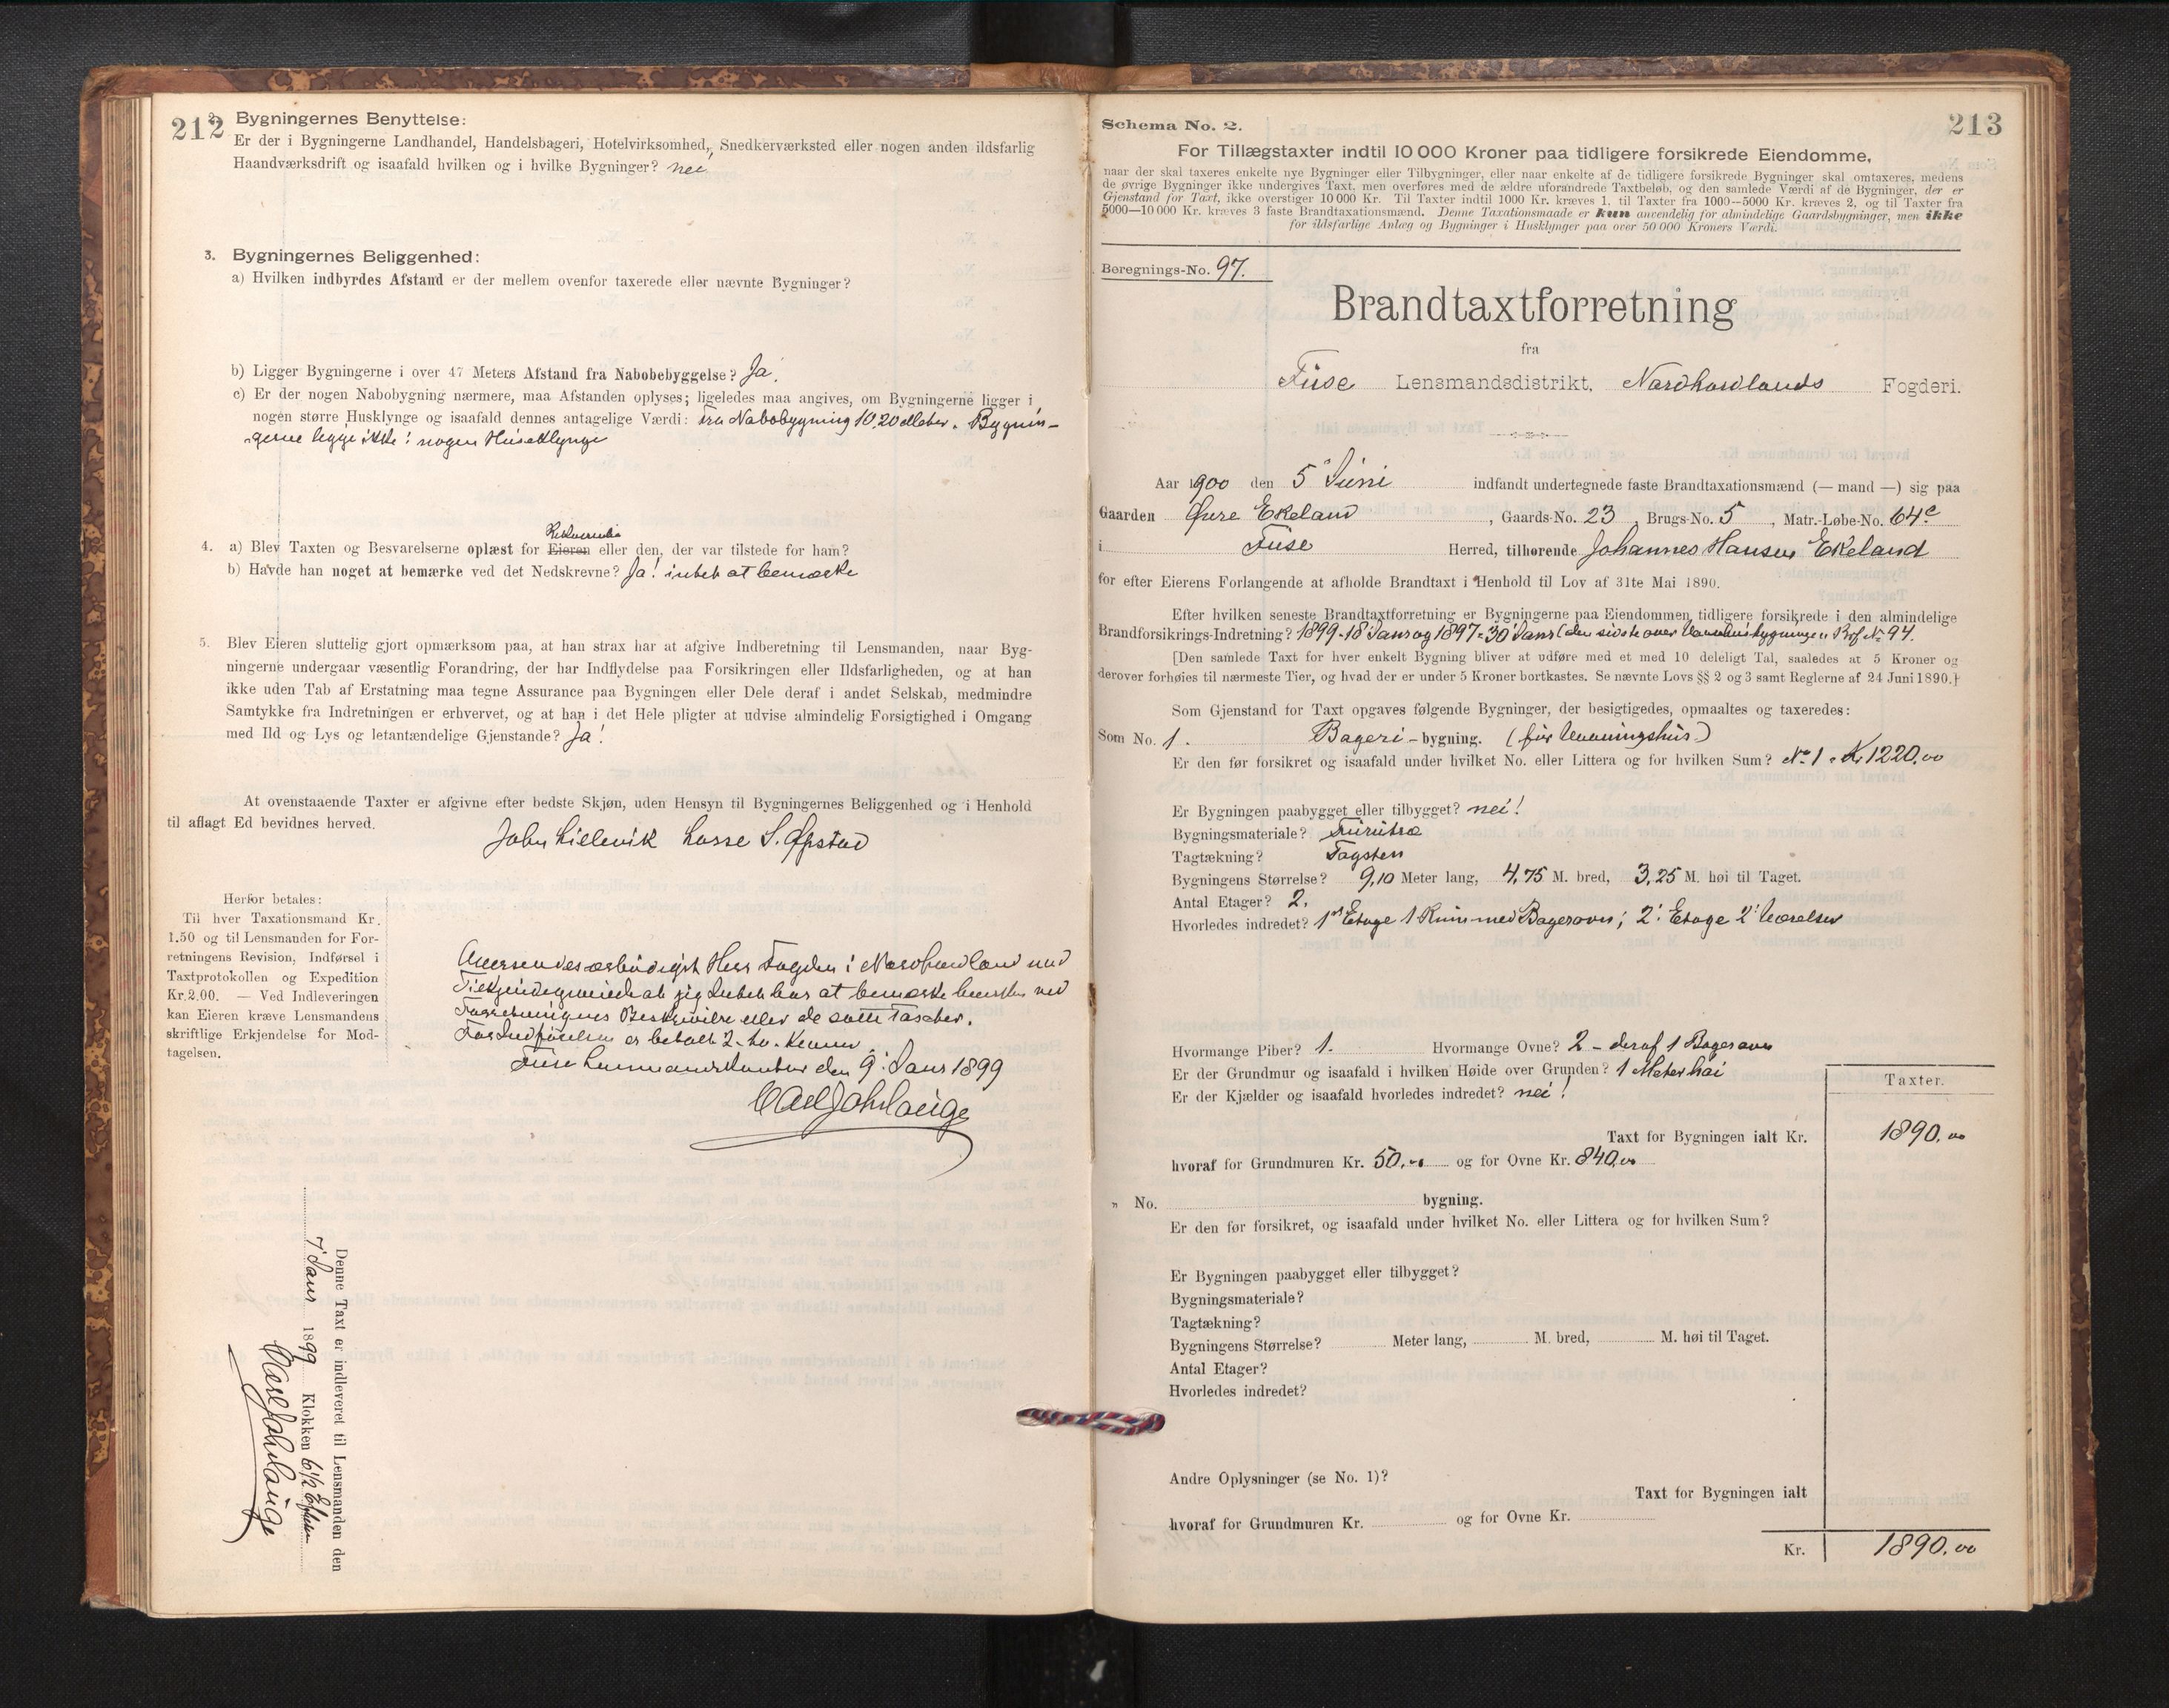 212
2. Bygningernes Benyttelse:
Er der i Bygningerne Landhandel, Handelsbageri, Hotelvirksomhed, Snedkerværksted eller nogen anden ildsfarlig
Haandværksdrift og isaafald hvilken og i hvilke Bygninger? nei
3. Bygningernes Beliggenhed:
a) Hvilken indbyrdes Afstand er der mellem ovenfor taxerede eller nævnte Bygninger?
b) Ligger Bygningerne i over 47 Meters Afstand fra Nabobebyggelse? Ja.
c) Er der nogen Nabobygning nærmere, maa Afstanden oplyses; ligeledes maa angives, om Bygningerne ligger i
nogen større Husklynge og isaafald dennes antagelige Værdi: Fra Nabobygning 10,20 Meter. Bygnin-
gerne ligge ikke i nogen Huseklynge
Rekvirenten
4. a) Blev Taxten og Besvarelserne oplæst for Eieren eller den, der var tilstede for ham?
b) Havde han noget at bemærke ved det Nedskrevne? Ja! intet at bemærke
5. Blev Eieren sluttelig gjort opmærksom paa, at han strax har at afgive Indberetning til Lensmanden, naar Byg-
ningerne undergaar væsentlig Forandring, der har Indflydelse paa Forsikringen eller Ildsfarligheden, og at han
ikke uden Tab af Erstatning maa tegne Assurance paa Bygningen eller Dele deraf i andet Selskab, medmindre
Samtykke fra Indretningen er erhvervet, og at han i det Hele pligter at udvise almindelig Forsigtighed i Omgang
med Ild og Lys og letantændelige Gjenstande? Ja!
At ovenstaaende Taxter er afgivne efter bedste Skjøn, uden Hensyn til Bygningernes Beliggenhed og i Henhold
til aflagt Ed bevidnes herved.
John Lillevik Lasse S. Øpstad
Herfor betales:
Til hver Taxationsmand Kr.
1.50 og til Lensmanden for For-
retningens Revision, Indførsel i
Taxtprotokollen og Expedition
Kr. 2.00. — Ved Indleveringen
kan Eieren kræve Lensmandens
skriftlige Erkjendelse for Mod-
tagelsen.
Oversendes ærbødigst Herr Fogden i Nordhordland med
Tilkjendegivende at jeg Intet har at bemærke hverken ved
Forretningens Beskrivelse eller de satte Taxter.
For Indførelsen er betalt 2 - to - Kroner.
Fuse Lensmandskontor den 9. Janr 1899
Carl Joh Lauge
Denne Taxt er indleveret til Lensmanden den
7 Janr 1899 Klokken 6 1/2 Efterm
Carl Joh Lauge
213
Schema No. 2.
For Tillægstaxter indtil 10 000 Kroner paa tidligere forsikrede Eiendomme,
naar der skal taxeres enkelte nye Bygninger eller Tilbygninger, eller naar enkelte af de tidligere forsikrede Bygninger skal omtaxeres, medens
de øvrige Bygninger ikke undergives Taxt, men overføres med de ældre uforandrede Taxtbeløb, og den samlede Værdi af de Bygninger, der er
Gjenstand for Taxt, ikke overstiger 10 000 Kr. Til Taxter indtil 1000 Kr. kræves 1, til Taxter fra 1000—5000 Kr. kræves 2, og til Taxter fra
5000—10 000 Kr. kræves 3 faste Brandtaxationsmænd. Denne Taxationsmaade er kun anvendelig for almindelige Gaardsbygninger, men ikke
for ildsfarlige Anlæg og Bygninger i Husklynger paa over 50 000 Kroners Værdi.
Beregnings-No. 97.
Brandtaxtforretning
fra
Fuse Lensmandsdistrikt, Nordhordlands Fogderi.
Aar 1900 den 5' Juni indfandt undertegnede faste Brandtaxationsmænd (— mand —) sig paa
Gaarden Øvre Ekeland, Gaards-No. 23, Brugs-No. 5, Matr.-Løbe-No. 64c
i Fuse Herred, tilhørende Johannes Hansen Ekeland
for efter Eierens Forlangende at afholde Brandtaxt i Henhold til Lov af 31te Mai 1890.
Efter hvilken seneste Brandtaxtforretning er Bygningerne paa Eiendommen tidligere forsikrede i den almindelige
Brandforsikrings-Indretning? 1899-18 Jan og 1897-30 Janr (den sidste over Vaaningsbygningen Brf No 94.
[Den samlede Taxt for hver enkelt Bygning bliver at udføre med et med 10 deleligt Tal, saaledes at 5 Kroner og
derover forhøies til nærmeste Tier, og hvad der er under 5 Kroner bortkastes. Se nævnte Lovs §§ 2 og 3 samt Reglerne af 24 Juni 1890.]
Som Gjenstand for Taxt opgaves følgende Bygninger, der besigtigedes, opmaaltes og taxeredes:
Som No. 1. Bageri-bygning. (før Vaaningshus)
Er den før forsikret og isaafald under hvilket No. eller Littera og for hvilken Sum? No 1 - Kr 1220,00
Er Bygningen paabygget eller tilbygget? nei!
Bygningsmateriale? Furutræ
Tagtækning? Tagsten
Bygningens Størrelse? 9,10 Meter lang, 4,75 M. bred, 3,25 M. høi til Taget.
Antal Etager? 2.
Hvorledes indredet? 1ste Etage 1 Rum med Bagerovn; 2. Etage 2 Værelser
Hvormange Piber? 1. Hvormange Ovne? 2 - deraf 1 Bagerovn
Er der Grundmur og isaafald i hvilken Høide over Grunden? 1 Meter høi
Er der Kjælder og isaafald hvorledes indredet? nei!
Taxter.
Taxt for Bygningen ialt Kr. 1890.00
hvoraf for Grundmuren Kr. 50.00 og for Ovne Kr. 840,00
" No. bygning.
Er den før forsikret, og isaafald under hvilket No. eller Littera og for hvilken Sum?
Er Bygningen paabygget eller tilbygget?
Bygningsmateriale?
Tagtækning?
Bygningens Størrelse? Meter lang, M. bred, M. høi til Taget.
Antal Etager?
Hvorledes indredet?
Andre Oplysninger (se No. 1)?
Taxt for Bygningen ialt
hvoraf for Grundmuren Kr. og for Ovne Kr.
Kr. 1890,00